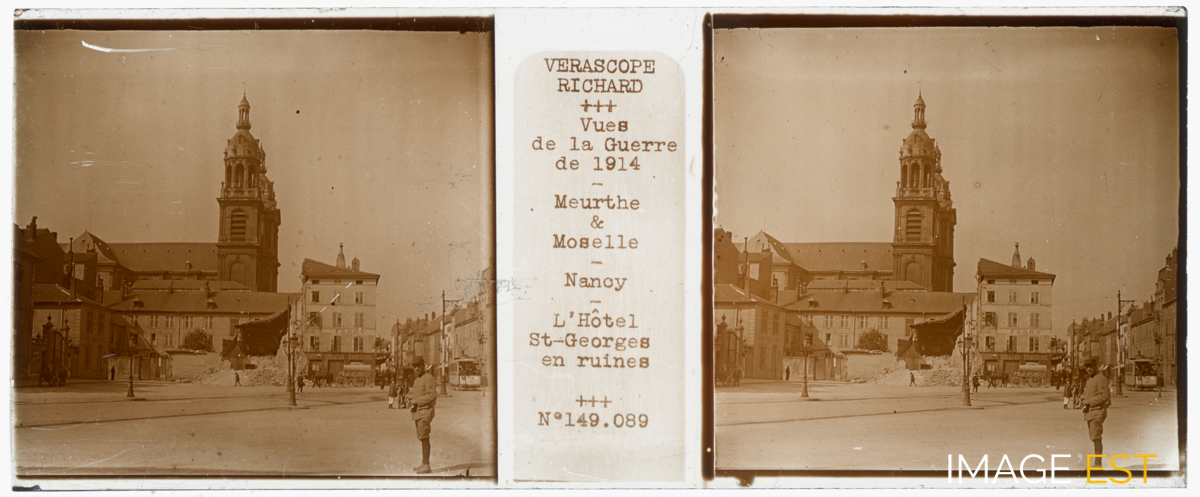 VERASCOPE
RICHARD
+++
Vues
de la Guerre
de 1914
—
Meurthe
&
Moselle
—
Nancy
—
L'Hôtel
St-Georges
en ruines
+++
N°149.089
IMAGE EST